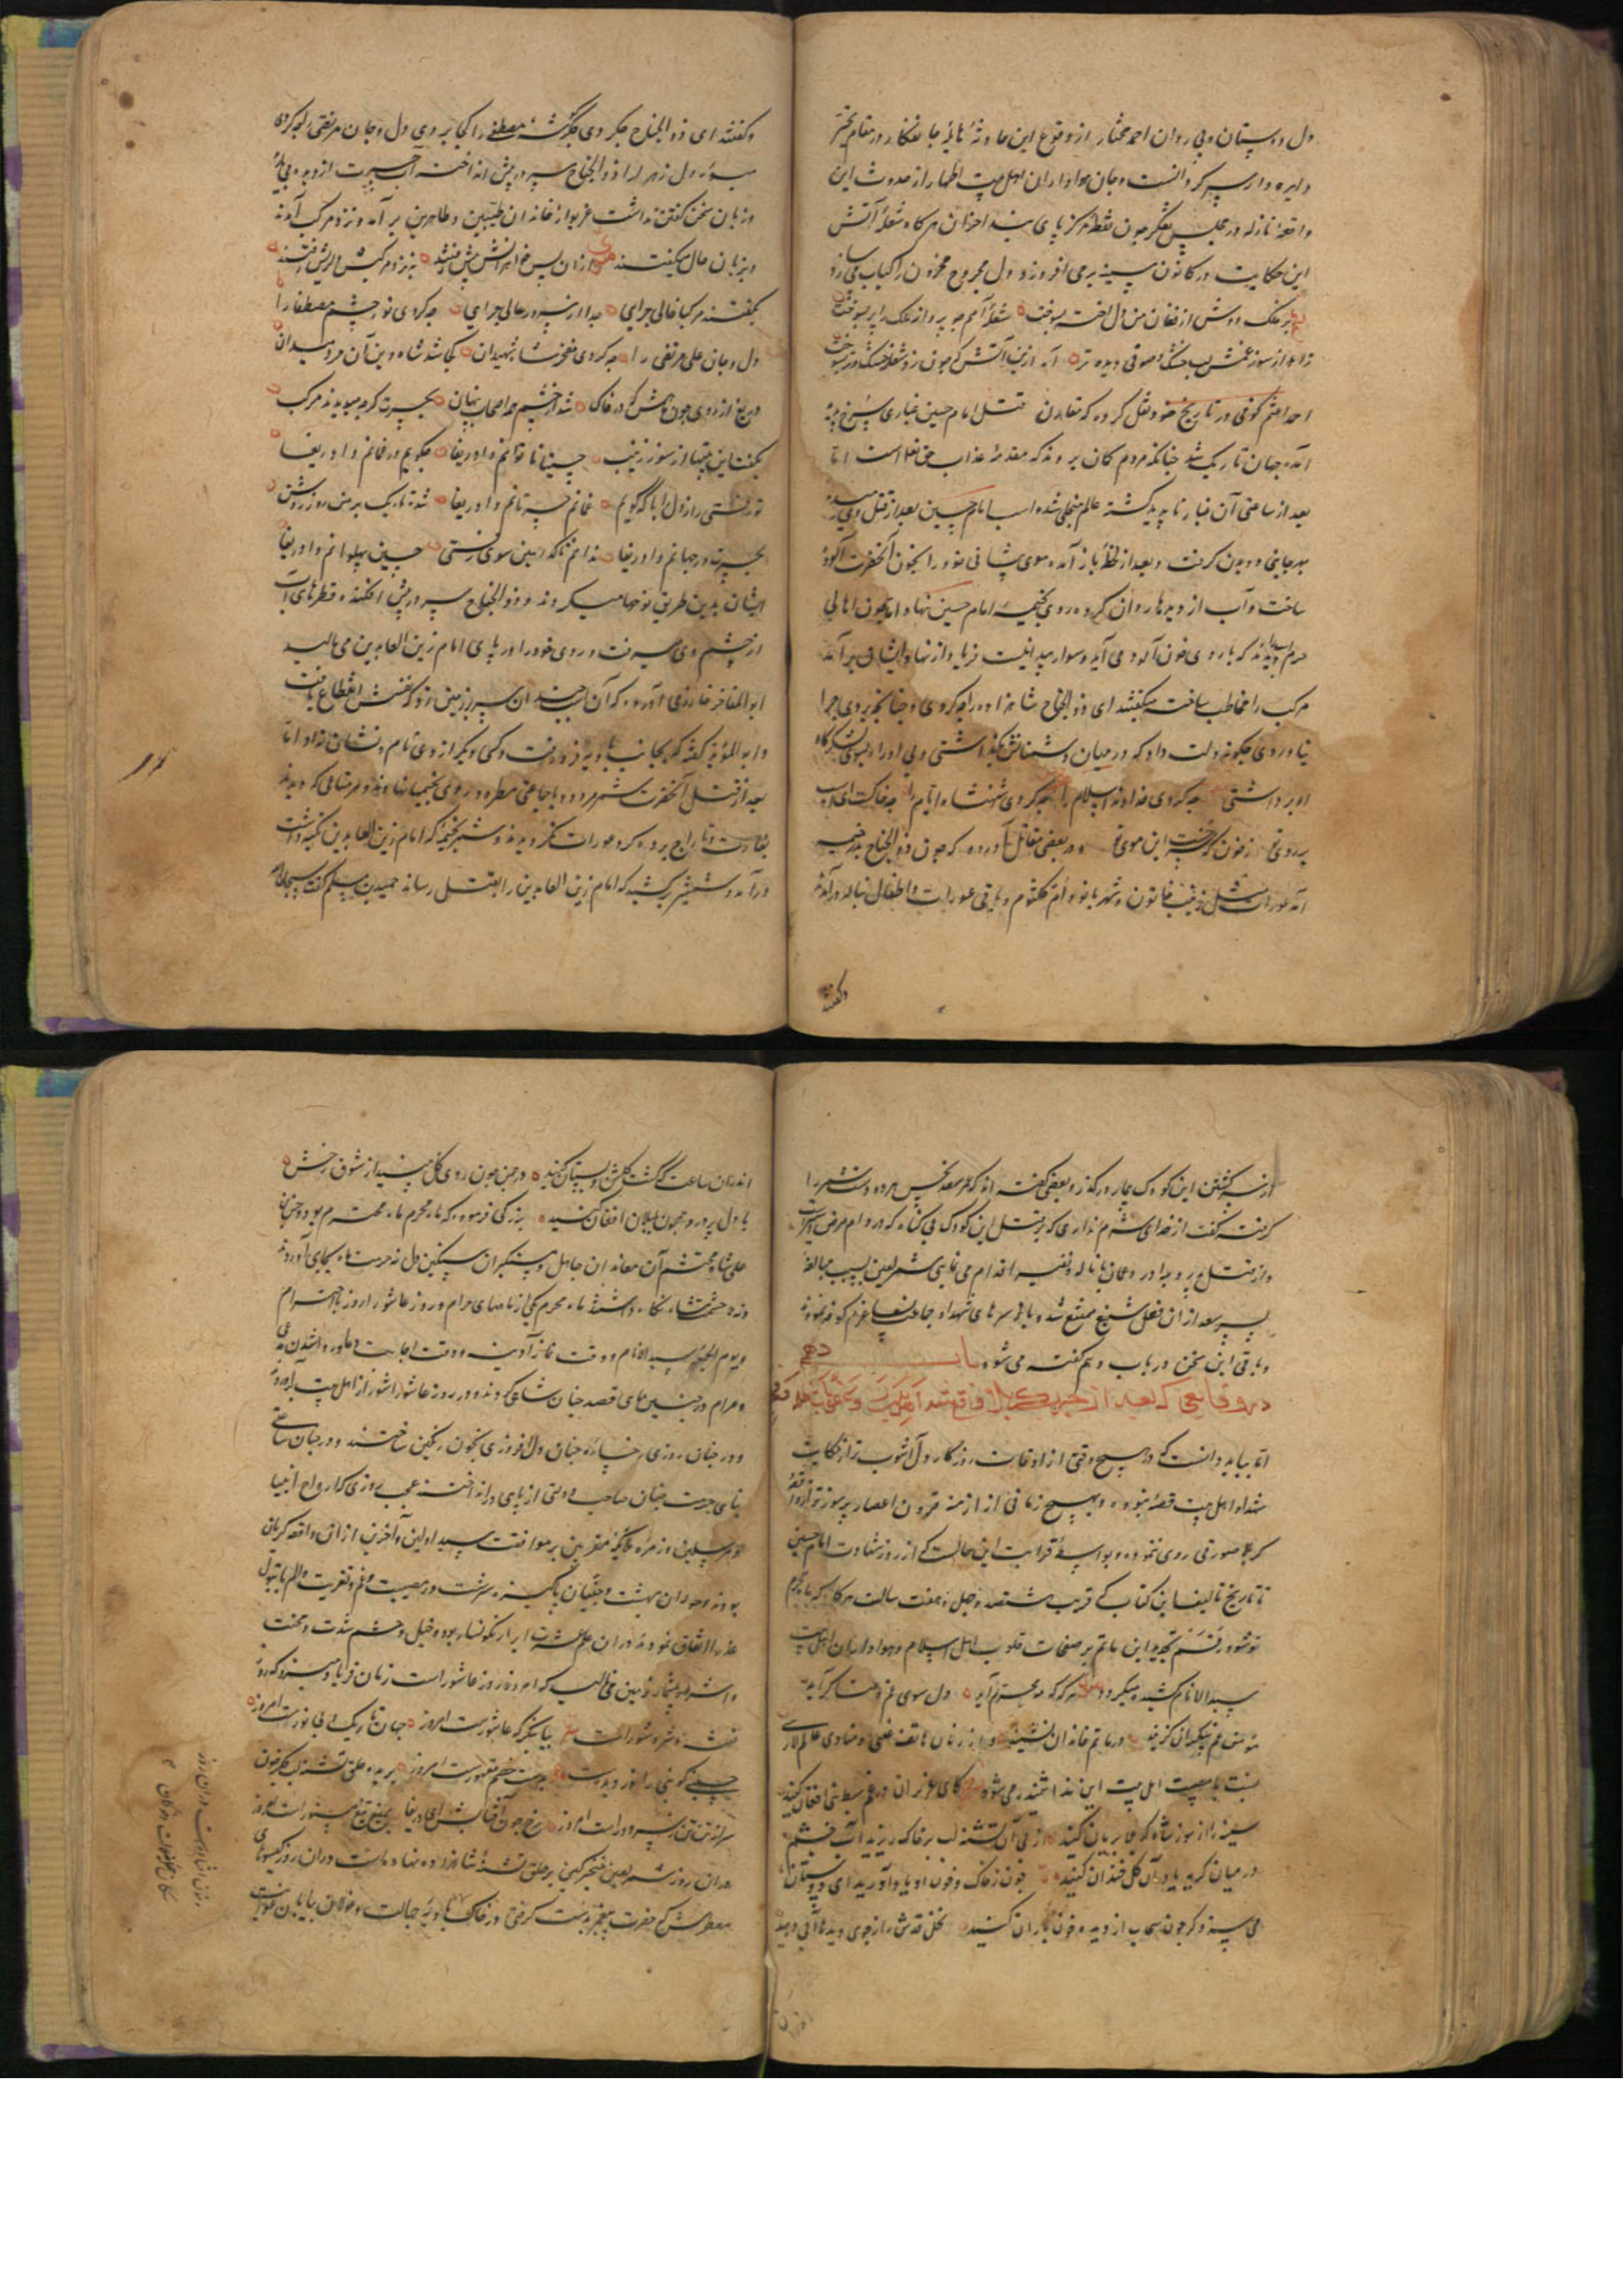 دل دوستان و پی روان احمد مختار از وقوع این حادثهٔ هایلهٔ جانفکار در مقام تحیر
دایره وار سر کردانست و جان هواداران اهل بیت اطهار از حدوث این
واقعهٔ نازله در مجلس تفکر چون نقطهٔ مرکز پای بند احزان هر کاه شعلهٔ آتش
این حکایت در کانون سینه بر می افروزد دل مجروح محزون را کباب می سازد
بر فلک دوش از فغان من دل اختر بسوخت شعلهٔ آهم چو پروانه ملک را پر بسوخت
زاهد از سوز غمش لب خشک و صوفی دیده تر آه ازین آتش که چون زد شعله خشک و تر بسوخت
احمد اعثم کوفی در تاریخ خود نقل کرده که مقارن قتل امام حسین غباری سرخ پدید
آمد و جهان تاریک شد چنانکه مردم کمان بردند که مقدمهٔ عذاب حق تعالی است اما
بعد از ساعتی آن غبار ناپدید گشته عالم منجلی شد و اسب امام حسین بعد از قتل وی رمیده
بهر جانبی دویدن کرفت و بعد از لحظهٔ باز آمد و موی پیشانی خود را بخون آنحضرت آلوده
ساخت و آب از دیدها روان کرده روی بخیمهٔ امام حسین نهاد اما چون اهالی
حرم اسب را دیدند که با روی خون آلود می آید و سوار پیدا نیست فریاد از نهاد ایشان برآمد
مرکب را مخاطب ساخته میکفتند ای ذوالجناح شاهزاده را چه کردی و چنانچه بردی چرا
نیاوردی چکونه دلت داد که در میان دشمنانش بکذاشتی و بی او راه بسوی لشکرگاه
او برداشتی چه کردی خداوند اسلام را چه کردی شهنشاه ایام را چه خاکست ای اسب
بر روی تو ز خون که سرخست این موی تو و در بعضی مقاتل آورده که چون ذوالجناح بدر خیمه
آمد عورات مثل زینب خاتون و شهربانو و ام کلثوم و باقی عورات و اطفال بناله درآمدند
وکفتند
وکفتند ای ذوالجناح چکردی جگرگوشهٔ مصطفی را کجا بردی دل و جان مرتضی را چه کردی
میوهٔ دل زهرا را ذوالجناح سر در پیش انداخته آب حسرت از دیده می بارید
و زبان سخن کفتن نداشت غریو از خاندان طیبین و طاهرین برآمد و نزد مرکب آمدند
و بزبان حال میکفتند ازان پس خواهرانش پیش رفتند بنزد مرکب دلریش رفتند
بکفتند مرکبا خالی چرایی جدا از سرور عالی چرایی چه کردی نور چشم مصطفی را
دل و جان علی مرتضی را چه کردی مفخر شاه شهیدان کجا شد شاه دین آن مرد میدان
دریغ از روی چون ماهش که در خاک شد از چشم همه اصحاب پنهان بحسرت کرد میدیدند مرکب
بکفت این بیتها از سوز زینب حسینا ناتوانم وادریغا چکویم در فغانم وادریغا
تو رفتی راز دل را با که گویم غمانم حسرتانم وادریغا شده تاریک بر من روز روشن
بحسرت در جهانم وادریغا ندانم تا کدامین سوی رفتی حسین پهلوانم وادریغا
ایشان بدین طریق نوحها میکردند و ذوالجناح سر در پیش افکنده قطرهای آب
از چشم وی میرفت و روی خود را در پای امام زین العابدین می مالید
ابوالمفاخر رازی آورده که آن اسب چندان سر بر زمین زد که نفسش انقطاع یافت
و ابوالمؤید کفته که بجانب بادیه فرو رفت و کسی دیگر از وی نام و نشان نداد اما
بعد از قتل آنحضرت شمر مردود با جماعتی مطرود روی بخیمها نهادند و هر متاعی که دیدند
بغارت و تاراج بردند و کرد عورات نکردیدند و شمر بخیمهٔ که امام زین العابدین تکیه داشت
درآمد و شمشیر برکشید که امام زین العابدین را بقتل رساند حمید بن مسلم کفت سبحان الله
از سر کشتن این کودک بیمار درکذر و بعضی کفته اند که عمر سعد نحس مردود دست شمر را
کرفت کفت از خدای شرم نداری که بر قتل این کودک بی کناه که در دام مرض اسیر است
و از قتل پدر و برادر و عمان با ناله و نفیر اقدام می نمایی شمر لعین بسبب مبالغهٔ
پسر سعد از ان فعل شنیع ممتنع شد و با سرهای شهدا و جماعت نسا عزم کوفه نمودند
و باقی این سخن در باب دهم کفته می شود باب دهم
در وقایعی که بعد از حرب کربلا واقع شد اهل بیت را و
اما بباید دانست که در هیچ وقتی از اوقات روزکار دل آشوب تر از حکایت
شهدا و اهل بیت قصهٔ نبوده و بهیچ زمانی از ازمنهٔ قرون اعصار پرسوزتر از واقعهٔ
کربلا صورتی روی ننموده و بواسطهٔ غرابت این حالت که از روز شهادت امام حسین
تا تاریخ تالیف این کتاب که قریب هشتصد و چهل و هفت سالست هرکاه که ماه محرم
نو شود رقم تجدید این ماتم بر صفحات قلوب اهل اسلام و هواداران اهل بیت
سید الانام کشیده میکردد هرگه که مه محرم آید دل سوی غم و عنا کراید
مؤمن غم بیکران کزیند در ماتم خاندان نشیند و از زبان هاتف غیبی و منادی عالم لاریبی
بنسبت با مصیبت اهل بیت این ندا شنیده می شود کای عزیزان در غم سبط نبی افغان کنید
سینه را از سوز شاه کربلا بریان کنید از پی آن تشنه لب بر خاک ریزید آب چشم
در میان گریه یاد آن گل خندان کنید خون ز خاک و خون او یاد آورید ای دوستان
می سزد گر چون سحاب از دیده خون باران کنید نخل قدش را ز جوی دیدها آبی دهید
اندران ساعت که گشت کلشن و بستان کنید در چمن چون روی کل بینید از شوق رخش
با دل پردرد همچون بلبلان افغان کنید بزرکی فرموده که ماه محرم ماه محترم بود
علی شاه محتشم آن معاندان جاهل و ستمگران سنگین دل نه حرمت ماه بجای آوردند
و نه حشمت شاه نکاه داشتند ماه محرم یکی از ماههای حرام و روز عاشورا روز با احترام
و یوم الجمعه سید الانام و وقت نماز آدینه و وقت اجابت دعا
و مرام در چنین های قصد چنان شاهی کردند و در روز عاشورا شور از اهل بیت برآوردند
و در چنان روزی رخساره چنان دل افروزی بخون رنگین ساختند و در چنان ساعتی
بنای حرمت چنان صاحب دولتی از پای درانداختند عجب روزی که ارواح انبیا
و مرسلین و زمره ملائکه مقربین بر موافقت سید اولین و آخرین ازان واقعه کریان
بودند و حوران بهشت و جنیان پاکیزه سرشت در مصیبت و غم و تعزیت و الم با بتول
عذرا اتفاق نموده
فتنه و شر و شور است بیا بنگر که عاشورست امروز جهان تاریک و بی نورست امروز
حسینی کو نبی را نور دیده است بدست خصم مقهورست امروز بریده حلق تشنه لب جگر خون
سر از تن تن ز سر دورست امروز رخ چون آفتابش ای دریغا بزیر تیغ مستورست امروز
دران روز شمر لعین خنجر کین بر حلق تشنهٔ شاهزاده نهاده است دران روز کیسوی
معطرش که حضرت پیغمبر بدست کرفتی در خاک بادیهٔ